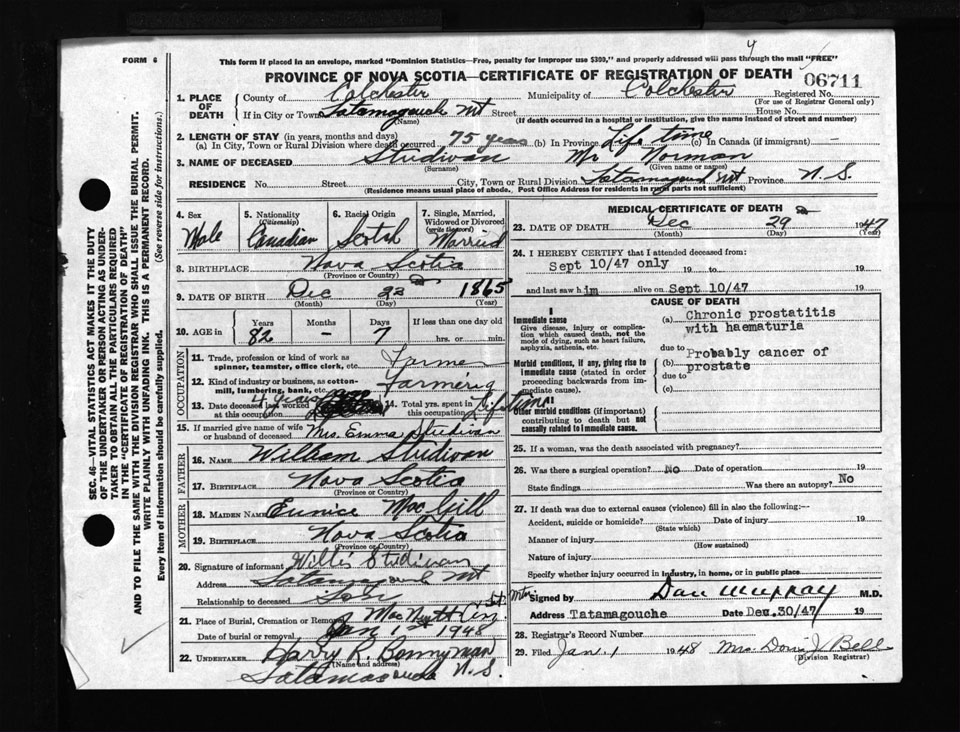 FORM 6
This form if placed in an envelope, marked "Dominion Statistics—Free, penalty for improper use $300," and properly addressed will pass through the mail "FREE"
PROVINCE OF NOVA SCOTIA—CERTIFICATE OF REGISTRATION OF DEATH 06711
1. PLACE OF DEATH County of Colchester Municipality of Colchester Registered No.
(For use of Registrar General only)
If in City or Town Tatamagouche Mt Street House No.
(Name) (If death occurred in a hospital or institution, give the name instead of street and number)
2. LENGTH OF STAY (in years, months and days)
(a) In City, Town or Rural Division where death occurred 75 years (b) In Province Life time (c) In Canada (if immigrant) —
3. NAME OF DECEASED Studivan Mr Norman
(Surname) (Given name or names)
RESIDENCE No. Street City, Town or Rural Division Tatamagouche Mt Province N.S.
(Residence means usual place of abode, Post Office Address for residents in rural parts not sufficient)
4. Sex Male
5. Nationality (Citizenship) Canadian
6. Racial Origin Scotch
7. Single, Married, Widowed or Divorced (write the word) Married
8. BIRTHPLACE Nova Scotia
(Province or Country)
9. DATE OF BIRTH Dec 22 1865
(Month) (Day) (Year)
10. AGE in Years Months Days If less than one day old
82 – 7 hrs. or min.
OCCUPATION
11. Trade, profession or kind of work as spinner, teamster, office clerk, etc. Farmer
12. Kind of industry or business, as cotton-mill, lumbering, bank, etc. Farming
13. Date deceased last worked at this occupation 4 years ago
14. Total yrs. spent in this occupation Life time
15. If married give name of wife or husband of deceased Mrs. Emma Studivan
FATHER
16. NAME William Studivan
17. BIRTHPLACE Nova Scotia
(Province or Country)
MOTHER
18. MAIDEN NAME Eunice MacGill
19. BIRTHPLACE Nova Scotia
(Province or Country)
20. Signature of informant Willis Studivan
Address Tatamagouche Mt
Relationship to deceased Son
21. Place of Burial, Cremation or Removal
Date of burial or removal Jan 1st 1948
22. UNDERTAKER Harry R. Bonnyman
(Name and address)
Tatamagouche N.S.
MEDICAL CERTIFICATE OF DEATH
23. DATE OF DEATH Dec 29 1947
(Month) (Day) (Year)
24. I HEREBY CERTIFY that I attended deceased from:
Sept 10/47 only 19 to 19
and last saw him alive on Sept 10/47 19
CAUSE OF DEATH
I
Immediate cause
Give disease, injury or complication which caused death, not the mode of dying, such as heart failure, asphyxia, asthenia, etc.
(a) Chronic prostatitis with haematuria
due to Probably cancer of prostate
Morbid conditions, if any, giving rise to immediate cause (stated in order proceeding backwards from immediate cause).
(b)
due to
(c)
II
Other morbid conditions (if important) contributing to death but not causally related to immediate cause.
25. If a woman, was the death associated with pregnancy?
26. Was there a surgical operation? No Date of operation 19
State findings Was there an autopsy? No
27. If death was due to external causes (violence) fill in also the following:—
Accident, suicide or homicide? Date of injury 19
(State which)
Manner of injury
(How sustained)
Nature of injury
Specify whether injury occurred in industry, in home, or in public place
Signed by Dan Murray M.D.
Address Tatamagouche Date Dec. 30/47 19
28. Registrar's Record Number
29. Filed Jan. 1 1948 Mrs. Doris J Bell
(Division Registrar)
SEC. 46—VITAL STATISTICS ACT MAKES IT THE DUTY
OF THE UNDERTAKER OR PERSON ACTING AS UNDERTAKER TO OBTAIN ALL THE PARTICULARS REQUIRED
IN THE "CERTIFICATE OF REGISTRATION OF DEATH"
AND TO FILE THE SAME WITH THE DIVISION REGISTRAR WHO SHALL ISSUE THE BURIAL PERMIT.
WRITE PLAINLY WITH UNFADING INK. THIS IS A PERMANENT RECORD.
Every item of information should be carefully supplied. (See reverse side for instructions.)